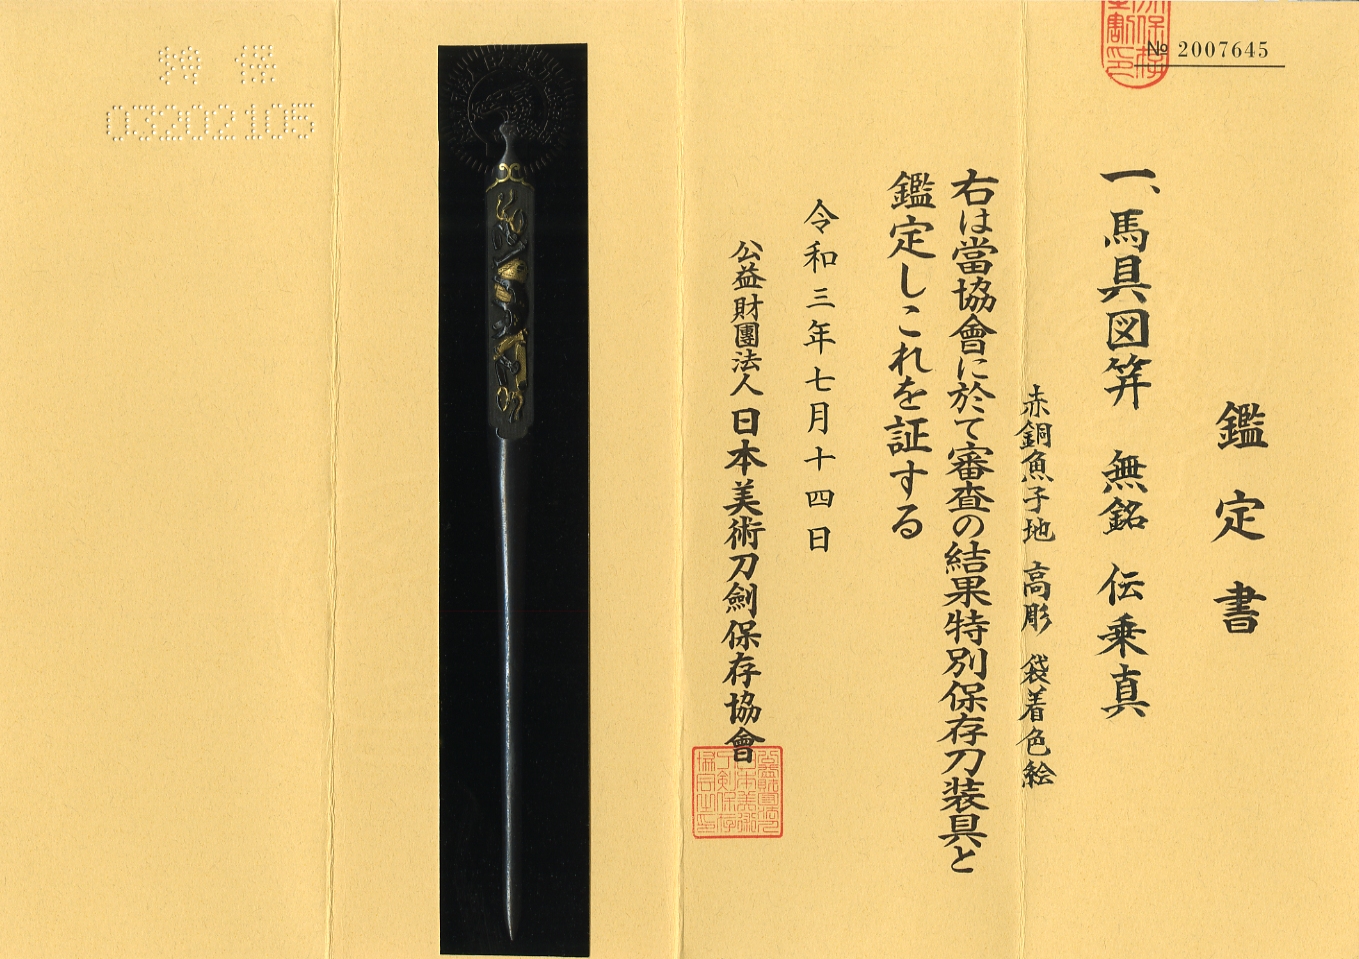 № 2007645
鑑定書
一、馬具図笄 無銘 伝乗真
赤銅魚子地 高彫 袋着色絵
右は當協會に於て審査の結果特別保存刀装具と
鑑定しこれを証する
令和三年七月十四日
公益財團法人 日本美術刀劍保存協會
03202105